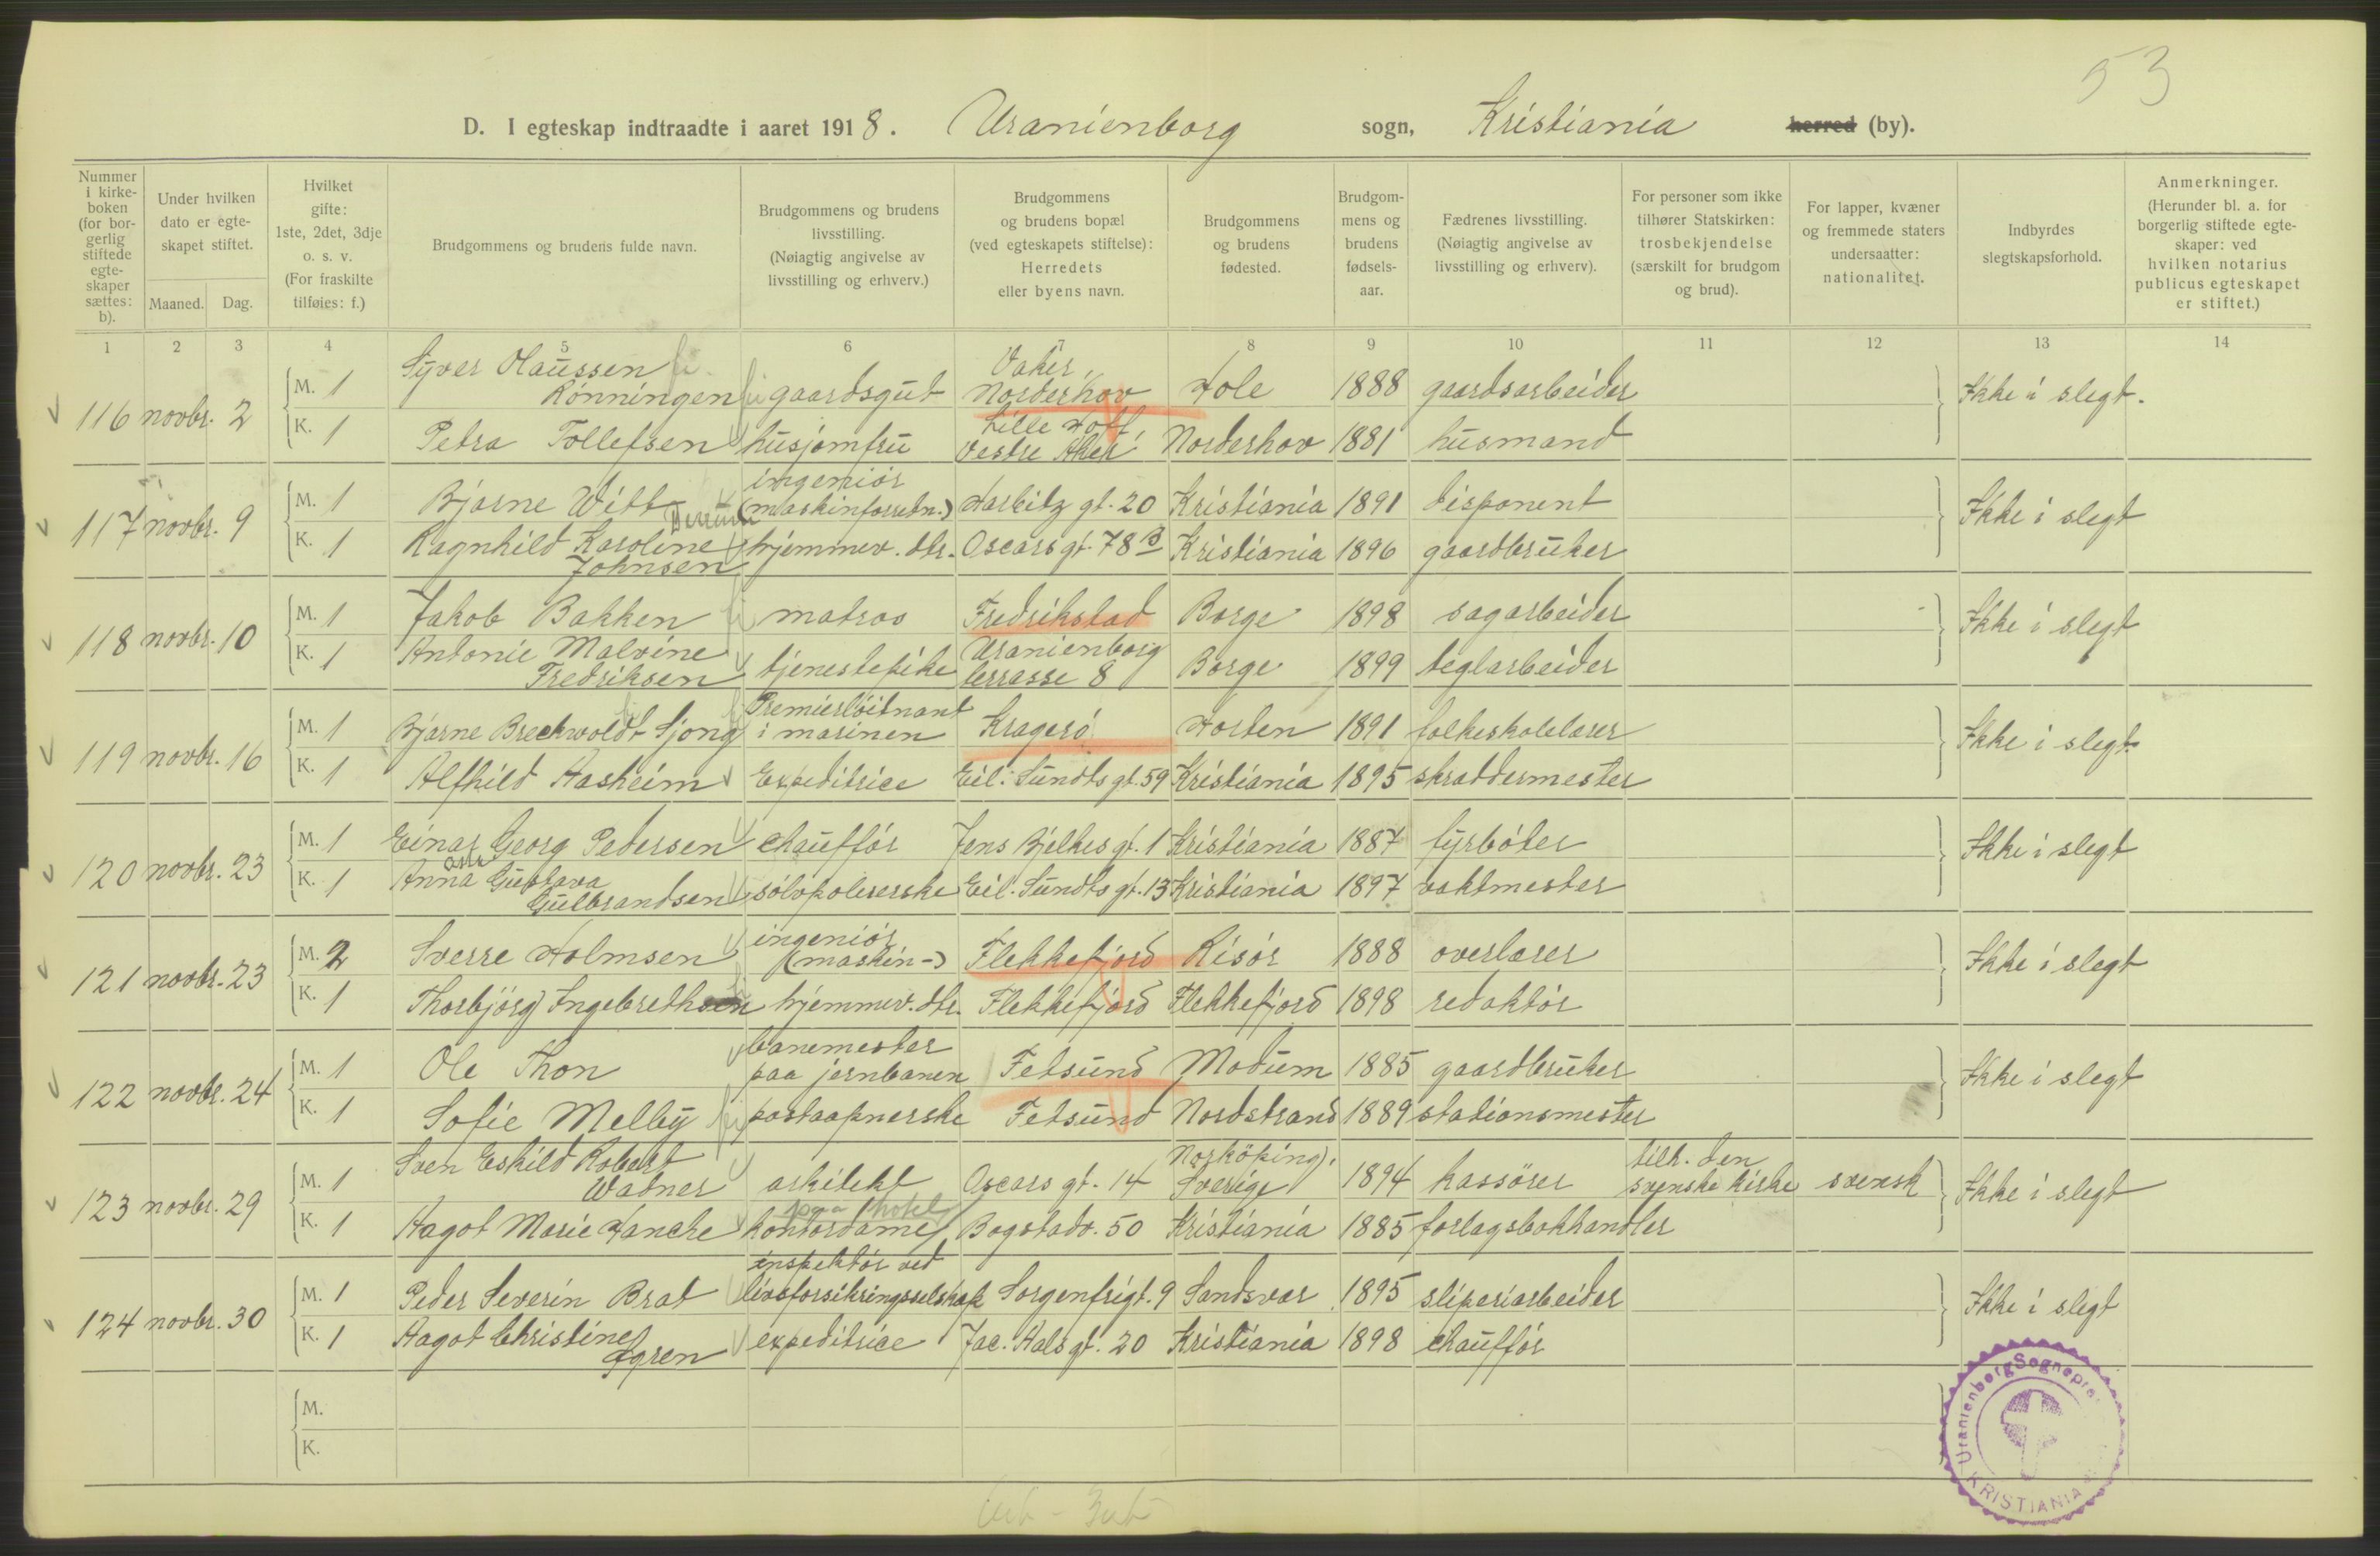 53
D. I egteskap indtraadte i aaret 1918. Uranienborg sogn, Kristiania herred (by).
Nummer i kirkeboken (for borgerlig stiftede egteskaper sættes: b).
Under hvilken dato er egteskapet stiftet.
Maaned. Dag.
Hvilket gifte: 1ste, 2det, 3dje o. s. v. (For fraskilte tilføies: f.)
Brudgommens og brudens fulde navn.
Brudgommens og brudens livsstilling. (Nøiagtig angivelse av livsstilling og erhverv.)
Brudgommens og brudens bopæl (ved egteskapets stiftelse): Herredets eller byens navn.
Brudgommens og brudens fødested.
Brudgommens og brudens fødselsaar.
Fædrenes livsstilling. (Nøiagtig angivelse av livsstilling og erhverv).
For personer som ikke tilhører Statskirken: trosbekjendelse (særskilt for brudgom og brud).
For lapper, kvæner og fremmede staters undersaatter: nationalitet.
Indbyrdes slegtskapsforhold.
Anmerkninger. (Herunder bl. a. for borgerlig stiftede egteskaper: ved hvilken notarius publicus egteskapet er stiftet.)
1 2 3 4 5 6 7 8 9 10 11 12 13 14
116 novbr. 2
M. 1 Syver Olaussen Rönningen gaardsgut Vaker, Norderhov Hole 1888 gaardsarbeider
K. 1 Petra Tollefsen husjomfru Lille Hoff, Vestre Aker Norderhov 1881 husmand
Ikke i slegt.
117 novbr. 9
M. 1 Bjarne Witt ingeniör (maskinforretn.) Harbitz gt. 20 Kristiania 1891 disponent
K. 1 Ragnhild Karoline Johnsen hjemmev. dtr. Oscars gt. 78 B Kristiania 1896 gaardbruker
Ikke i slegt
118 novbr. 10
M. 1 Jakob Bakken matros Fredrikstad Borge 1898 sagarbeider
K. 1 Antonie Malvine Fredriksen tjenestepike Uranienborg terrasse 8 Borge 1899 teglarbeider
Ikke i slegt
119 novbr. 16
M. 1 Bjarne Brechwoldt Sjong Premierlöitnant i marinen Kragerö Horten 1891 folkeskolelærer
K. 1 Alfhild Aasheim Expeditrice Eil. Sundts gt. 59 Kristiania 1895 skræddermester
Ikke i slegt
120 novbr. 23
M. 1 Einar Georg Pedersen chaufför Jens Bjelkes gt. 1 Kristiania 1887 fyrböter
K. 1 Anna Gustava Gulbrandsen sölvpolererske Eil. Sundts gt. 13 Kristiania 1897 vaktmester
Ikke i slegt
121 novbr. 23
M. 2 Sverre Holmsen ingeniör (maskin-) Flekkefjord Risör 1888 overlærer
K. 1 Thorbjörg Ingebrethsen hjemmev. dtr. Flekkefjord Flekkefjord 1898 redaktör
Ikke i slegt
122 novbr. 24
M. 1 Ole Thon banemester paa jernbanen Fetsund Modum 1885 gaardbruker
K. 1 Sofie Melby postaapnerske Fetsund Nordstrand 1889 stationsmester
Ikke i slegt
123 novbr. 29
M. 1 Sven Eskild Robert Wadner arkitekt Oscars gt. 14 Norköping, Sverige 1894 kassörer tilh. den svenske kirke svensk
K. 1 Aagot Marie Hanche kontordame paa hotel Bogstadv. 50 Kristiania 1885 forlagsbokhandler
Ikke i slegt
124 novbr. 30
M. 1 Peder Severin Brat inspektör ved livsforsikringsselskap Sorgenfrigt. 9 Sandsvær 1895 sliperiarbeider
K. 1 Aagot Christine Ågren expeditrice Jac. Aals gt. 20 Kristiania 1898 chaufför
Ikke i slegt
M.
K.
Uranienborg Sognepre
KRISTIANIA